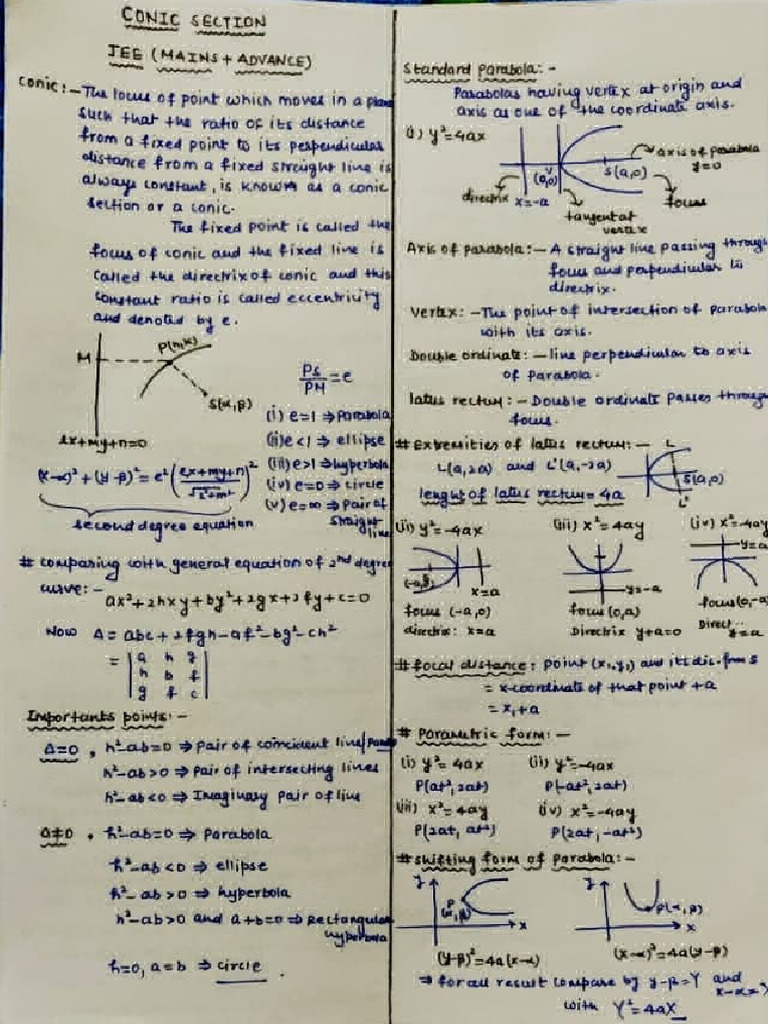 CONIC SECTION
JEE (MAINS + ADVANCE)
Conic :- The locus of point which moves in a plane
such that the ratio of its distance
from a fixed point to its perpendicular
distance from a fixed straight line is
always constant, is known as a conic
section or a conic.
The fixed point is called the
focus of conic and the fixed line is
called the directrix of conic and this
constant ratio is called eccentricity
and denoted by e.
M
P(h,k)
S(α,β)
lx+my+n=0
PS/PM = e
(i) e=1 ⇒ parabola
(ii) e<1 ⇒ ellipse
(iii) e>1 ⇒ hyperbola
(iv) e=0 ⇒ circle
(v) e=∞ ⇒ pair of
straight
line
(x-α)² + (y-β)² = e² (lx+my+n / √l²+m²)²
second degree equation
# comparing with general equation of 2nd degree
curve:-
ax²+2hxy+by²+2gx+2fy+c=0
Now Δ = abc+2fgh-af²-bg²-ch²
= | a h g |
| h b f |
| g f c |
Importants points:-
Δ=0, h²-ab=0 ⇒ pair of coincident line/
h²-ab>0 ⇒ pair of intersecting lines
h²-ab<0 ⇒ Imaginary pair of line
Δ≠0, h²-ab=0 ⇒ parabola
h²-ab<0 ⇒ ellipse
h²-ab>0 ⇒ hyperbola
h²-ab>0 and a+b=0 ⇒ Rectangular
hyperbola
h=0, a=b ⇒ circle.
Standard parabola:-
Parabolas having vertex at origin and
axis as one of the coordinate axis.
(i) y²=4ax
axis of parabola
y=0
(0,0)
S(a,0)
directrix
x=-a
tangent at
vertex
focus
Axis of parabola:- A straight line passing through
focus and perpendicular to
directrix.
Vertex:- The point of intersection of parabola
with its axis.
Double ordinate:- line perpendicular to axis
of parabola.
latus rectum:- Double ordinate passes through
focus.
# Extremities of latus rectum:-
L(a,2a) and L'(a,-2a)
L
S(a,0)
L'
lenght of latus rectum = 4a
(ii) y²=-4ax (iii) x²=4ay (iv) x²=-4ay
x=a y=-a y=a
focus (-a,0) focus (0,a) focus (0,-a)
directrix: x=a Directrix y+a=0 Direct.. y=a
# focal distance: point (x₁,y₁) and its dis. from S
= x-coordinate of that point + a
= x₁+a
# Parametric form:-
(i) y²=4ax (ii) y²=-4ax
P(at²,2at) P(-at²,2at)
(iii) x²=4ay (iv) x²=-4ay
P(2at, at²) P(2at,-at²)
# Shifting form of parabola:-
y
P
(α,β)
x
y
P(α,β)
x
(y-β)²=4a(x-α) (x-α)²=4a(y-β)
⇒ for all result compare by y-β=Y and
x-α=
with Y²=4aX